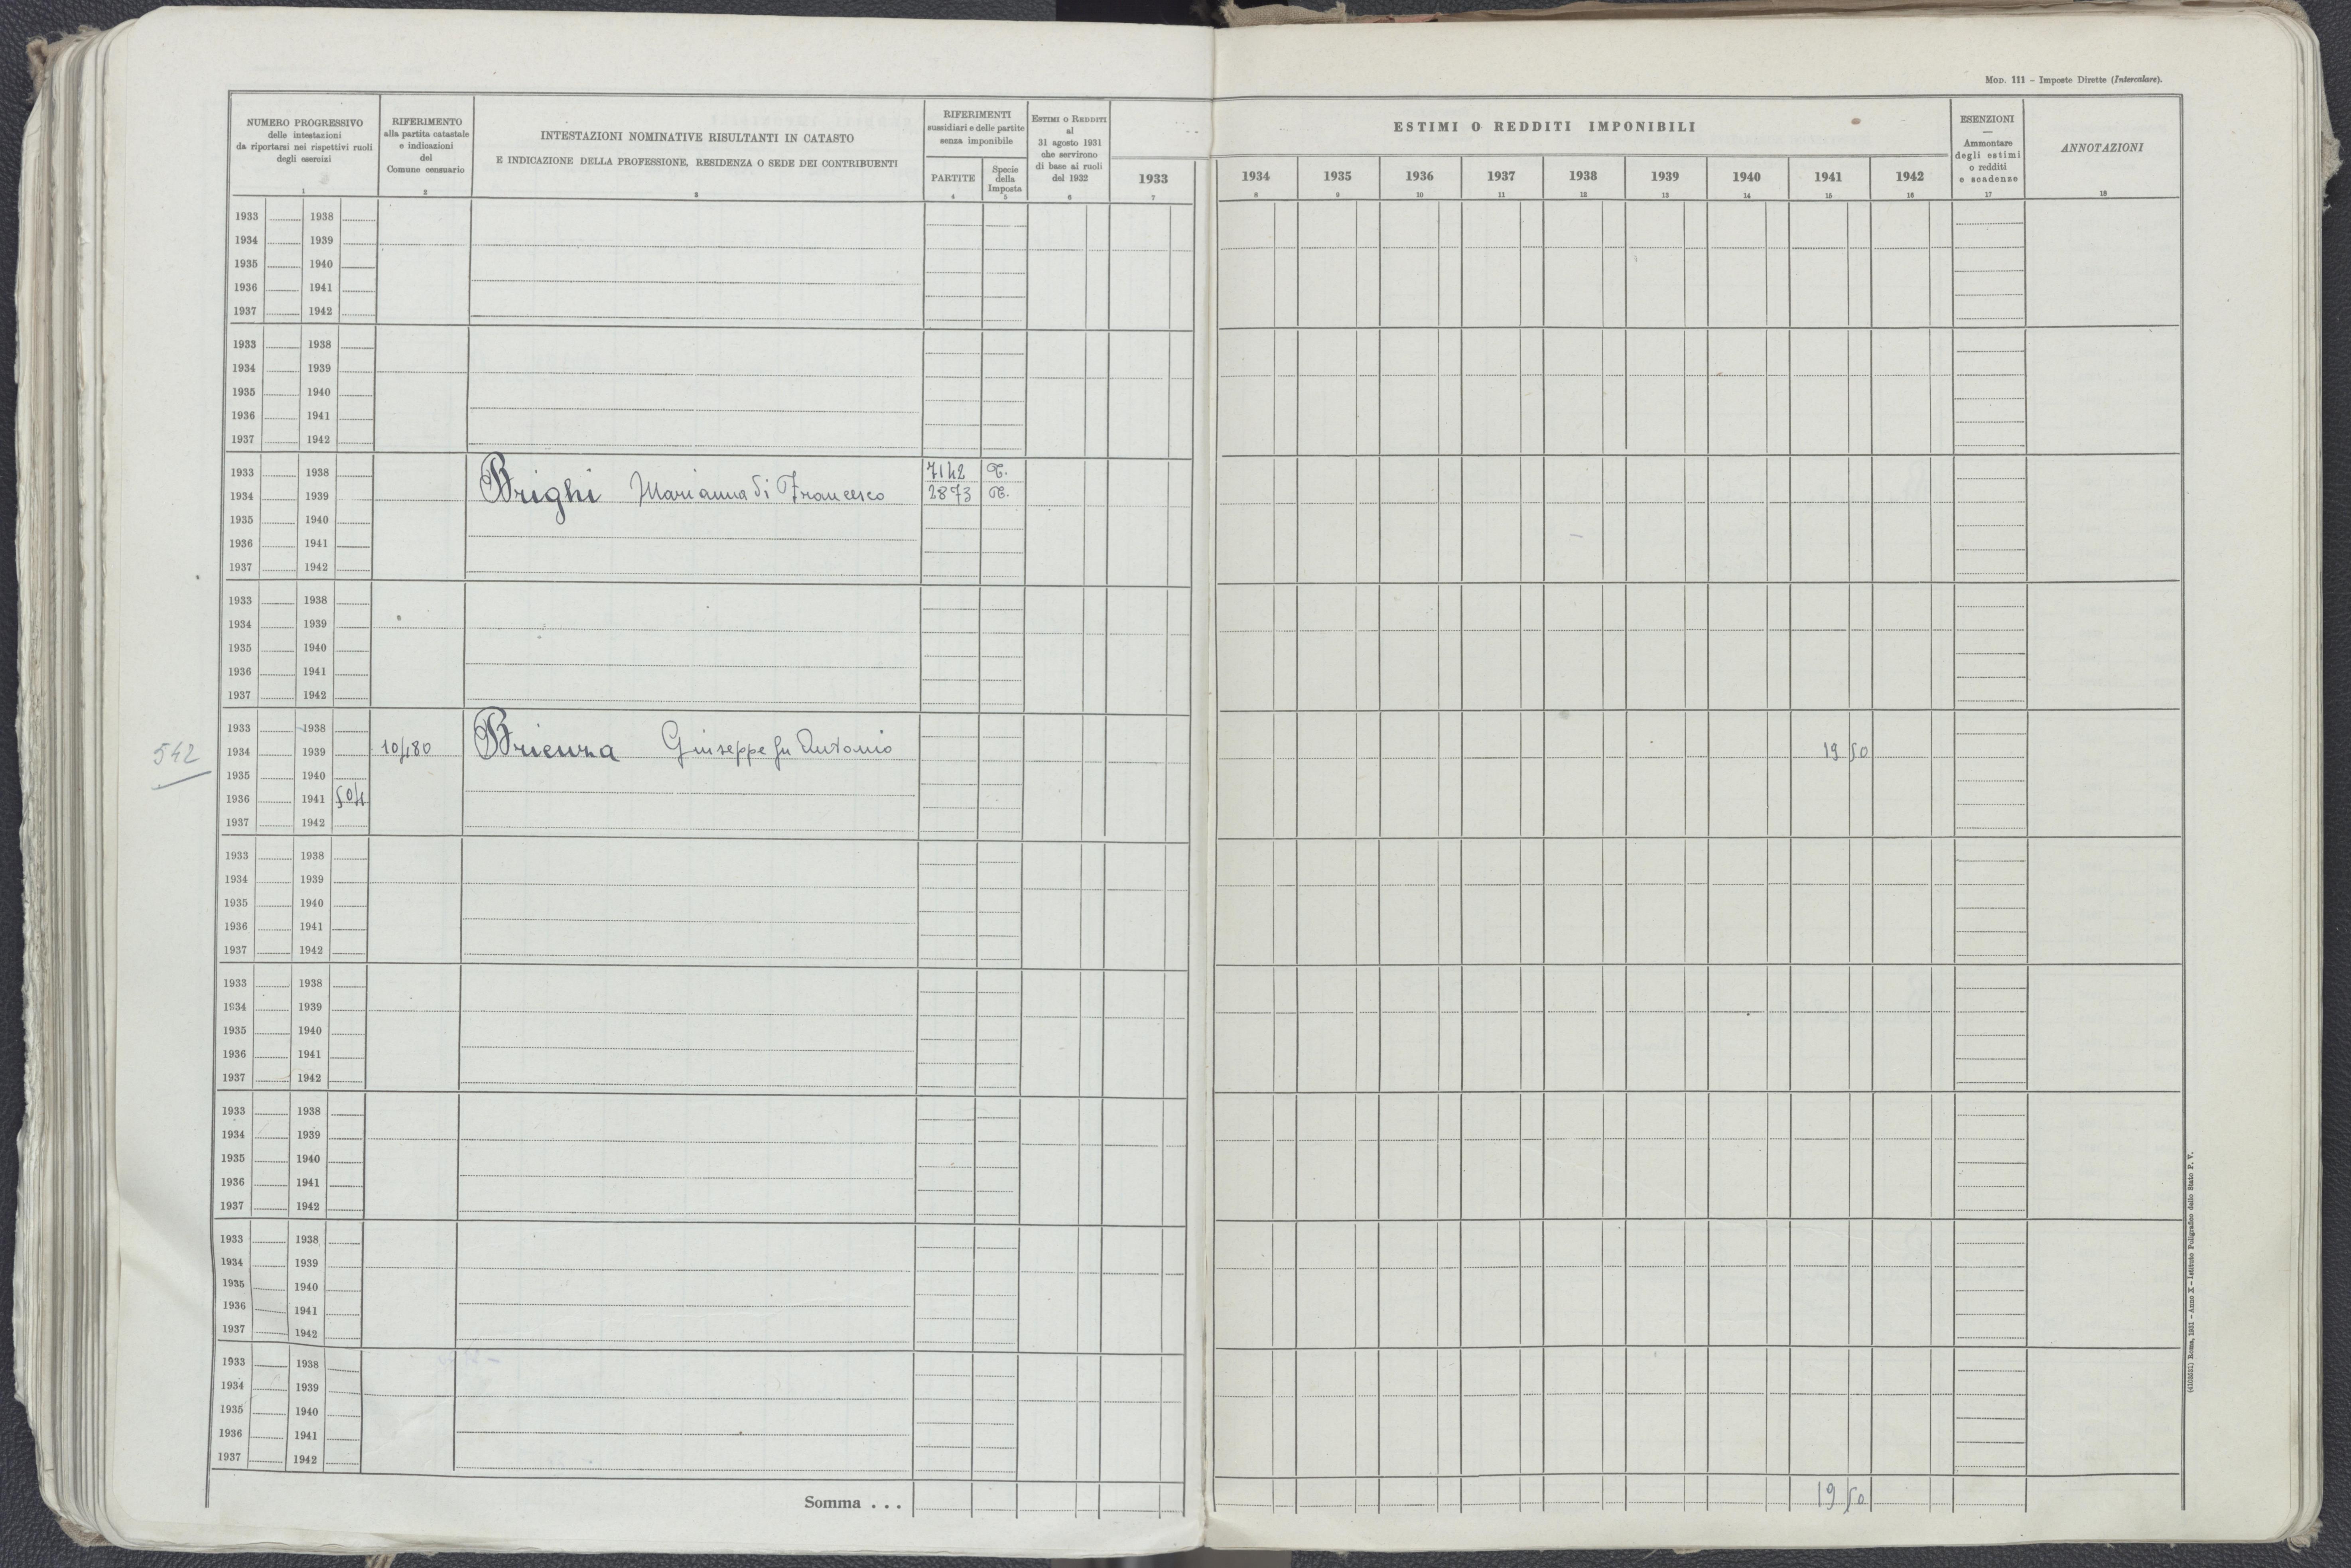 Mod. 111 – Imposte Dirette (Intercalare).
NUMERO PROGRESSIVO
delle intestazioni
da riportarsi nei rispettivi ruoli
degli esercizi
1
RIFERIMENTO
alla partita catastale
e indicazioni
del
Comune censuario
2
INTESTAZIONI NOMINATIVE RISULTANTI IN CATASTO
E INDICAZIONE DELLA PROFESSIONE, RESIDENZA O SEDE DEI CONTRIBUENTI
3
RIFERIMENTI
sussidiari e delle partite
senza imponibile
PARTITE
4
Specie
della
Imposta
5
Estimi o Redditi
al
31 agosto 1931
che servirono
di base ai ruoli
del 1932
6
ESTIMI O REDDITI IMPONIBILI
1933 1934 1935 1936 1937 1938 1939 1940 1941 1942
7 8 9 10 11 12 13 14 15 16
ESENZIONI
—
Ammontare
degli estimi
o redditi
e scadenze
17
ANNOTAZIONI
18
1933 1938
1934 1939
1935 1940
1936 1941
1937 1942
1933 1938
1934 1939
1935 1940
1936 1941
1937 1942
1933 1938 7142 T.
1934 1939 Brighi Marianna di Francesco 2873 T.
1935 1940
1936 1941
1937 1942
1933 1938
1934 1939
1935 1940
1936 1941
1937 1942
1933 1938
542 1934 1939 10480 Brienza Giuseppe fu Antonio 19 50
1935 1940
1936 1941 504
1937 1942
1933 1938
1934 1939
1935 1940
1936 1941
1937 1942
1933 1938
1934 1939
1935 1940
1936 1941
1937 1942
1933 1938
1934 1939
1935 1940
1936 1941
1937 1942
1933 1938
1934 1939
1935 1940
1936 1941
1937 1942
1933 1938
1934 1939
1935 1940
1936 1941
1937 1942
Somma . . . 19 50
(4103051) Roma, 1931 – Anno X – Istituto Poligrafico dello Stato P. V.